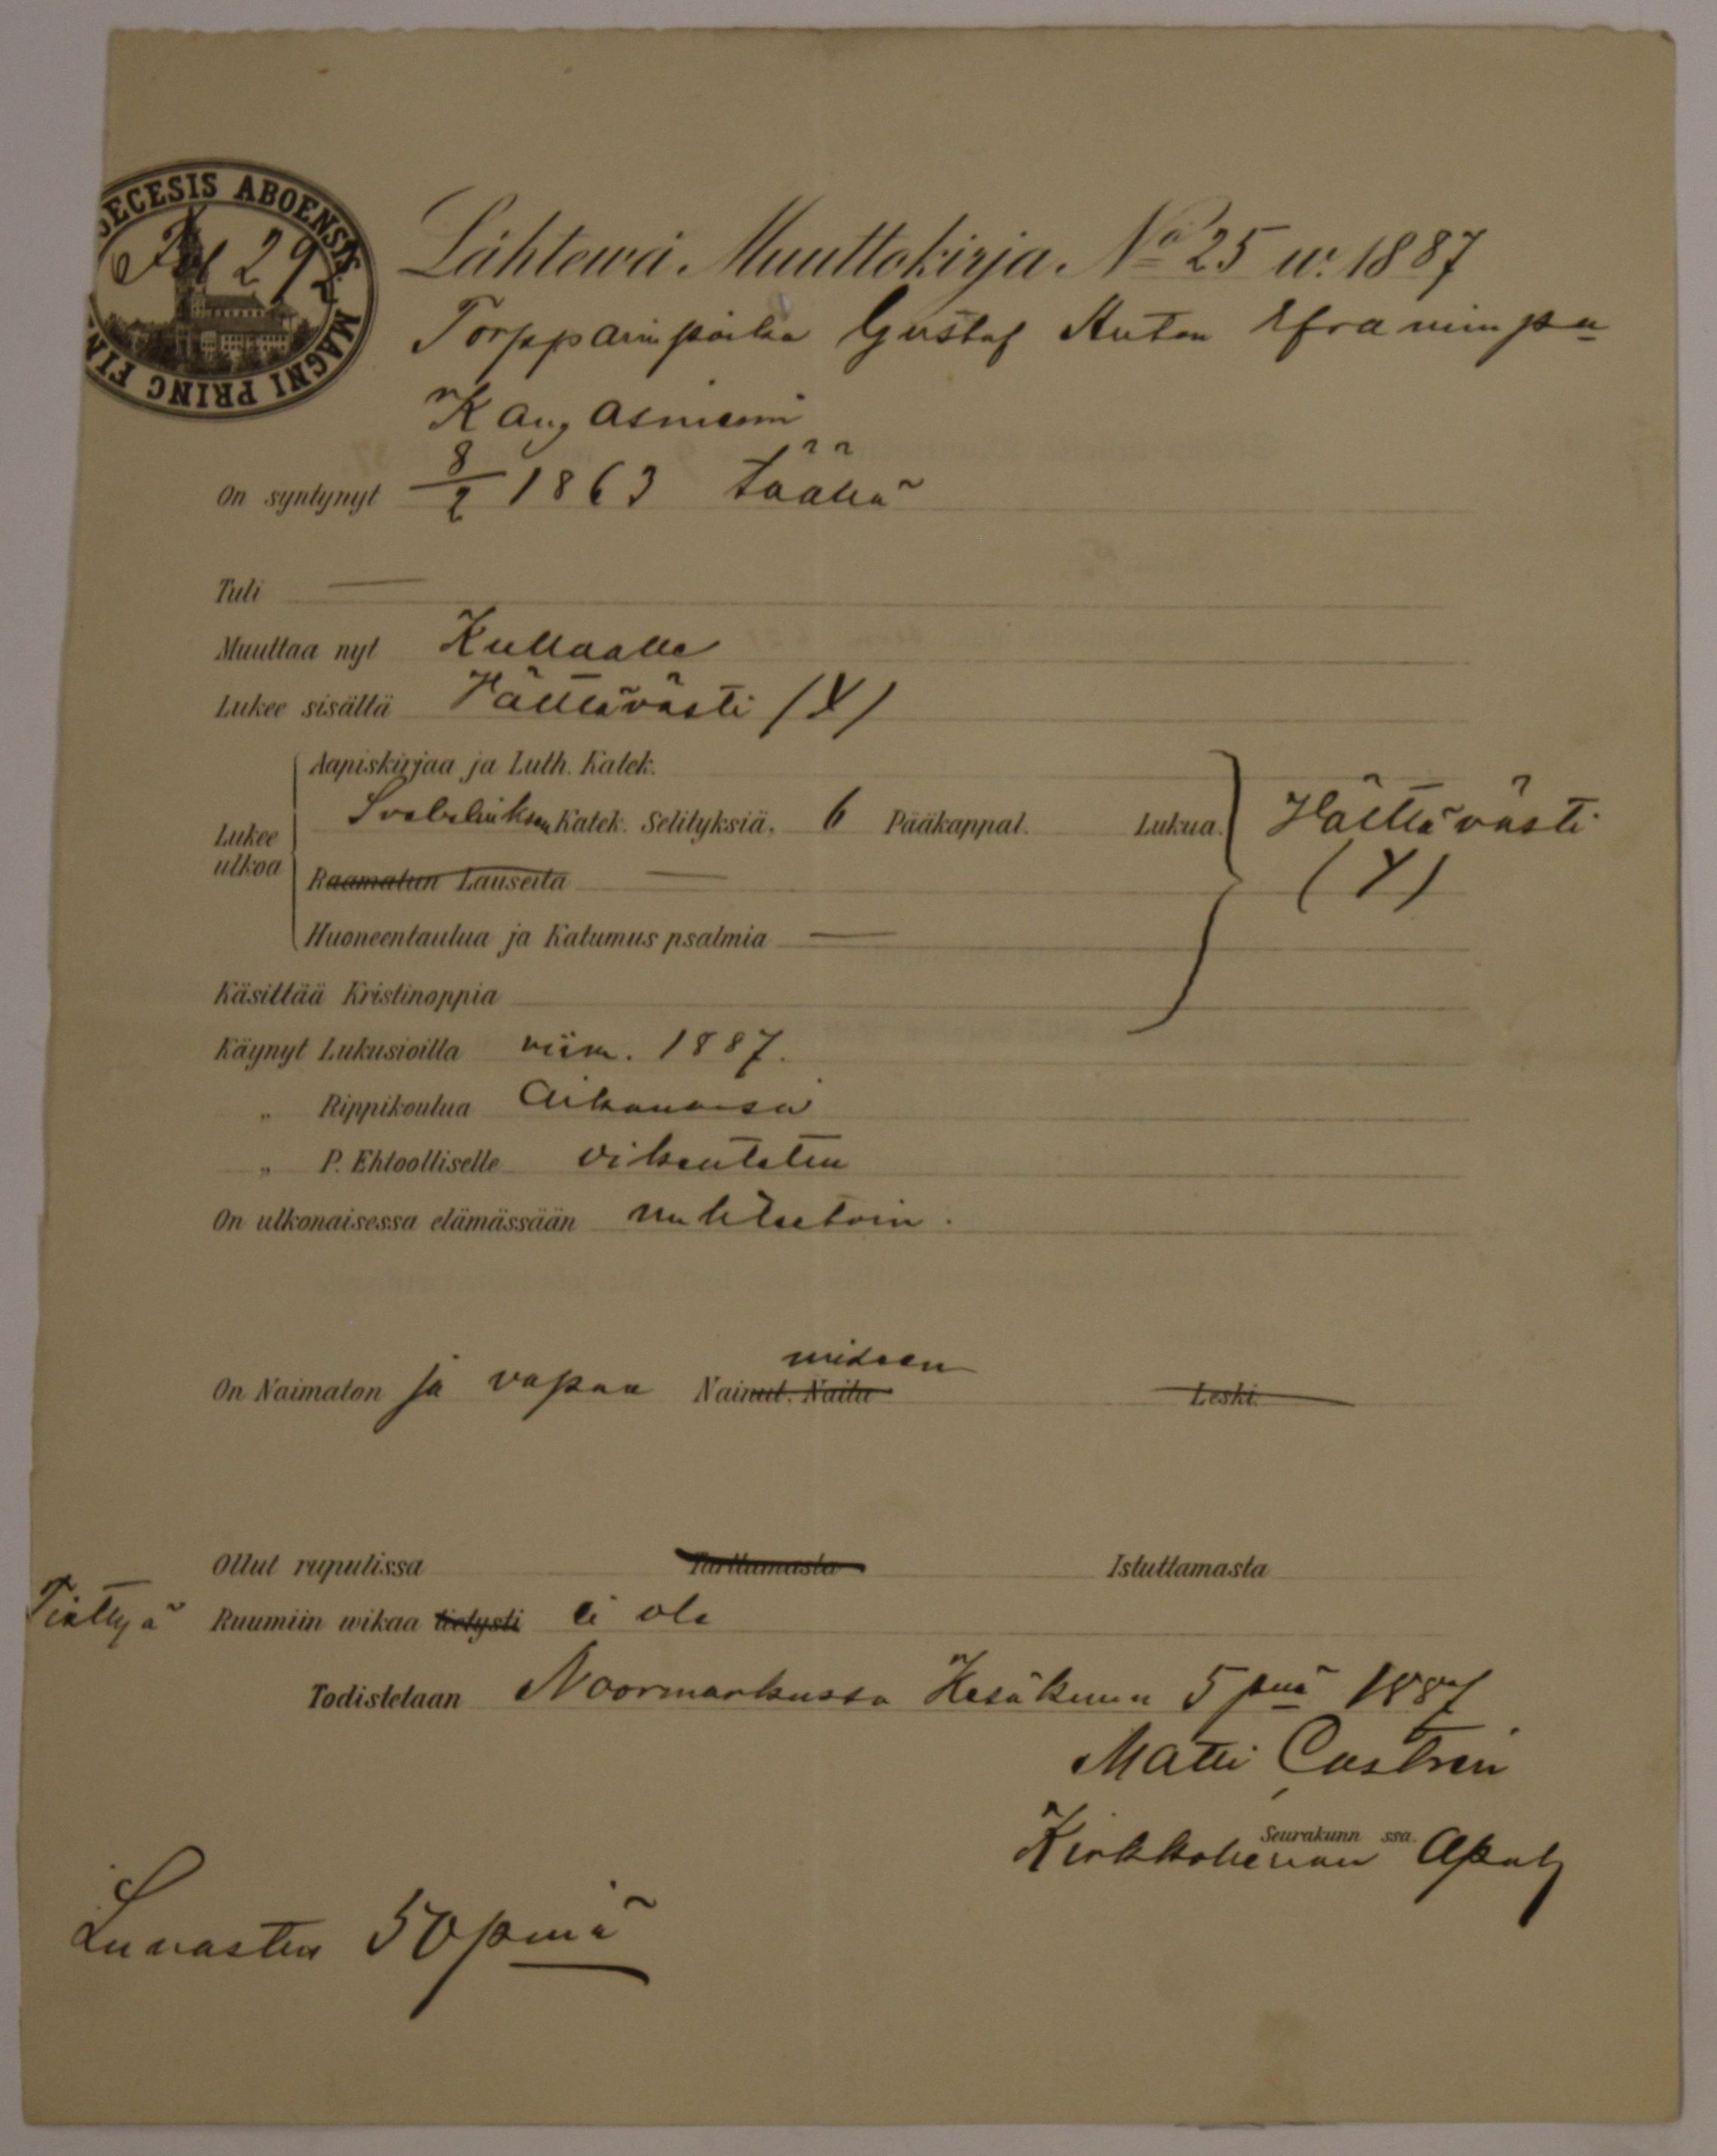 DECESIS ABOENSIS MAGNI PRINC FIN
Pag 292
Lähtewä Muuttokirja No 25 w. 1887
Torpparinpoika Gustaf Anton Efraiminpa
Kangasniemi
On syntynyt 8/2 1863 täällä
Tuli —
Muuttaa nyt Kullaalle
Lukee sisältä Hälttävästi (Y)
Aapiskirjaa ja Luth. Katek.
Lukee ulkoa Svebeliuksen Katek. Selityksiä, 6 Pääkappal. Lukua. Hälttävästi
Raamatun Lauseita — (Y)
Huoneentaulua ja Katumus psalmia —
Käsittää Kristinoppia
Käynyt Lukusioilla viim. 1887.
„ Rippikoulua Aikanansa
„ P. Ehtoolliselle viheutetten
On ulkonaisessa elämässään nuhteetoin.
miehen
On Naimaton ja vapaa Nainut. Naitu Leski.
Ollut rupulissa Tarttumasta Istuttamasta
Tiettyä Ruumiin wikaa tietysti ei ole
Todistetaan Noormarkussa Kesäkuun 5 pnä 1887
Matti Castrén
Seurakunn ssa.
Kirkkoherran Apul
Lunastus 50 pniä